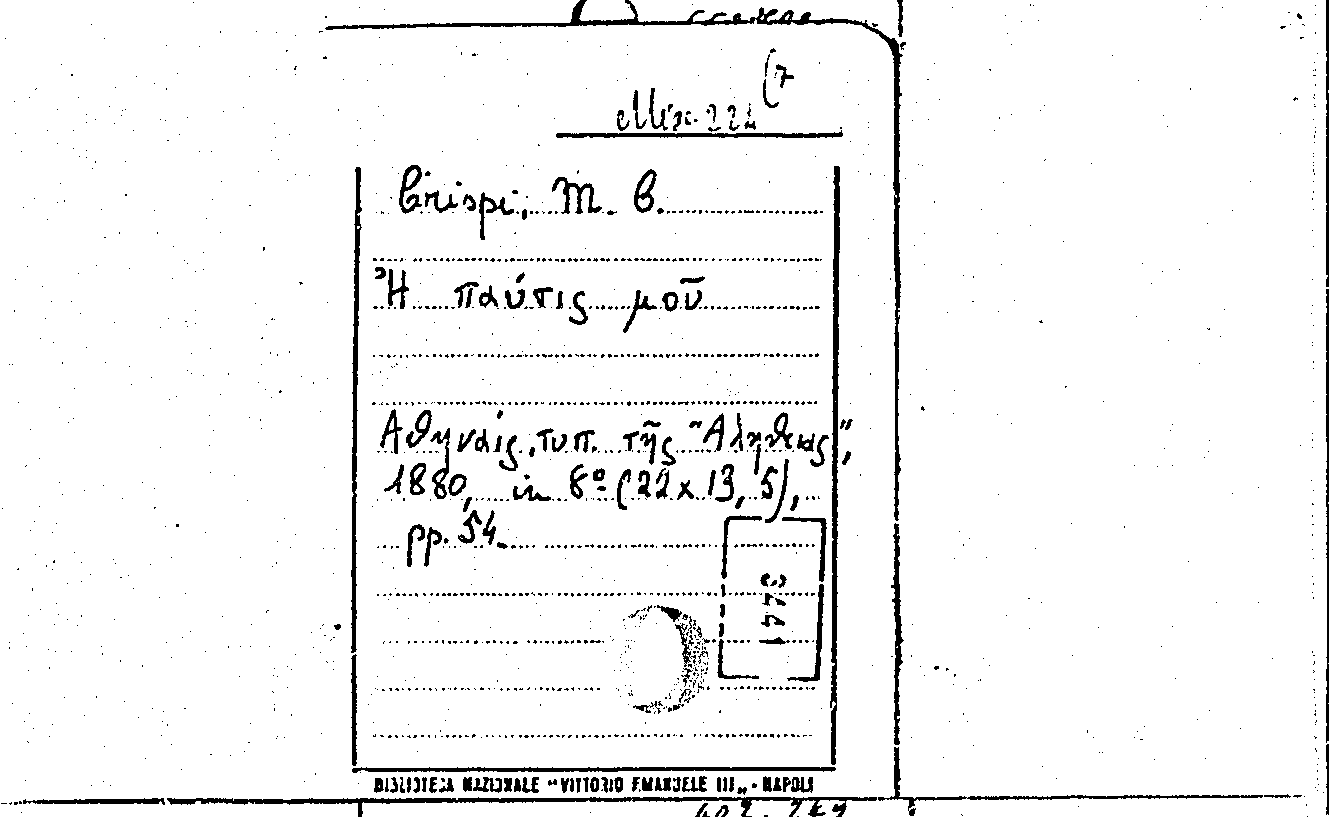 (7
Misc. 224
Crispi, M. C.
Ἡ παύτις μοῦ
Ἀθηνάις, τυπ. τῆς "Ἀληθείας",
1880, in 8º (22 x 13,5),
pp. 54.
3441
BIBLIOTECA NAZIONALE "VITTORIO EMANUELE III„ - NAPOLI